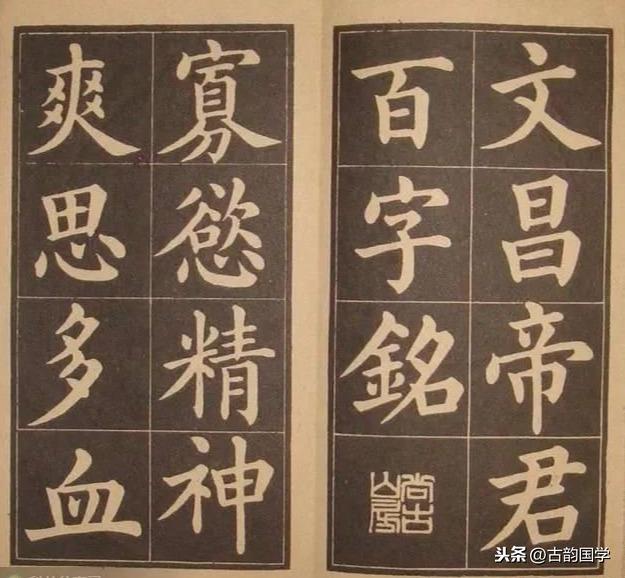 文昌帝君
百字銘
尚古山房
寡慾精神
爽思多血
头条@古韵国学